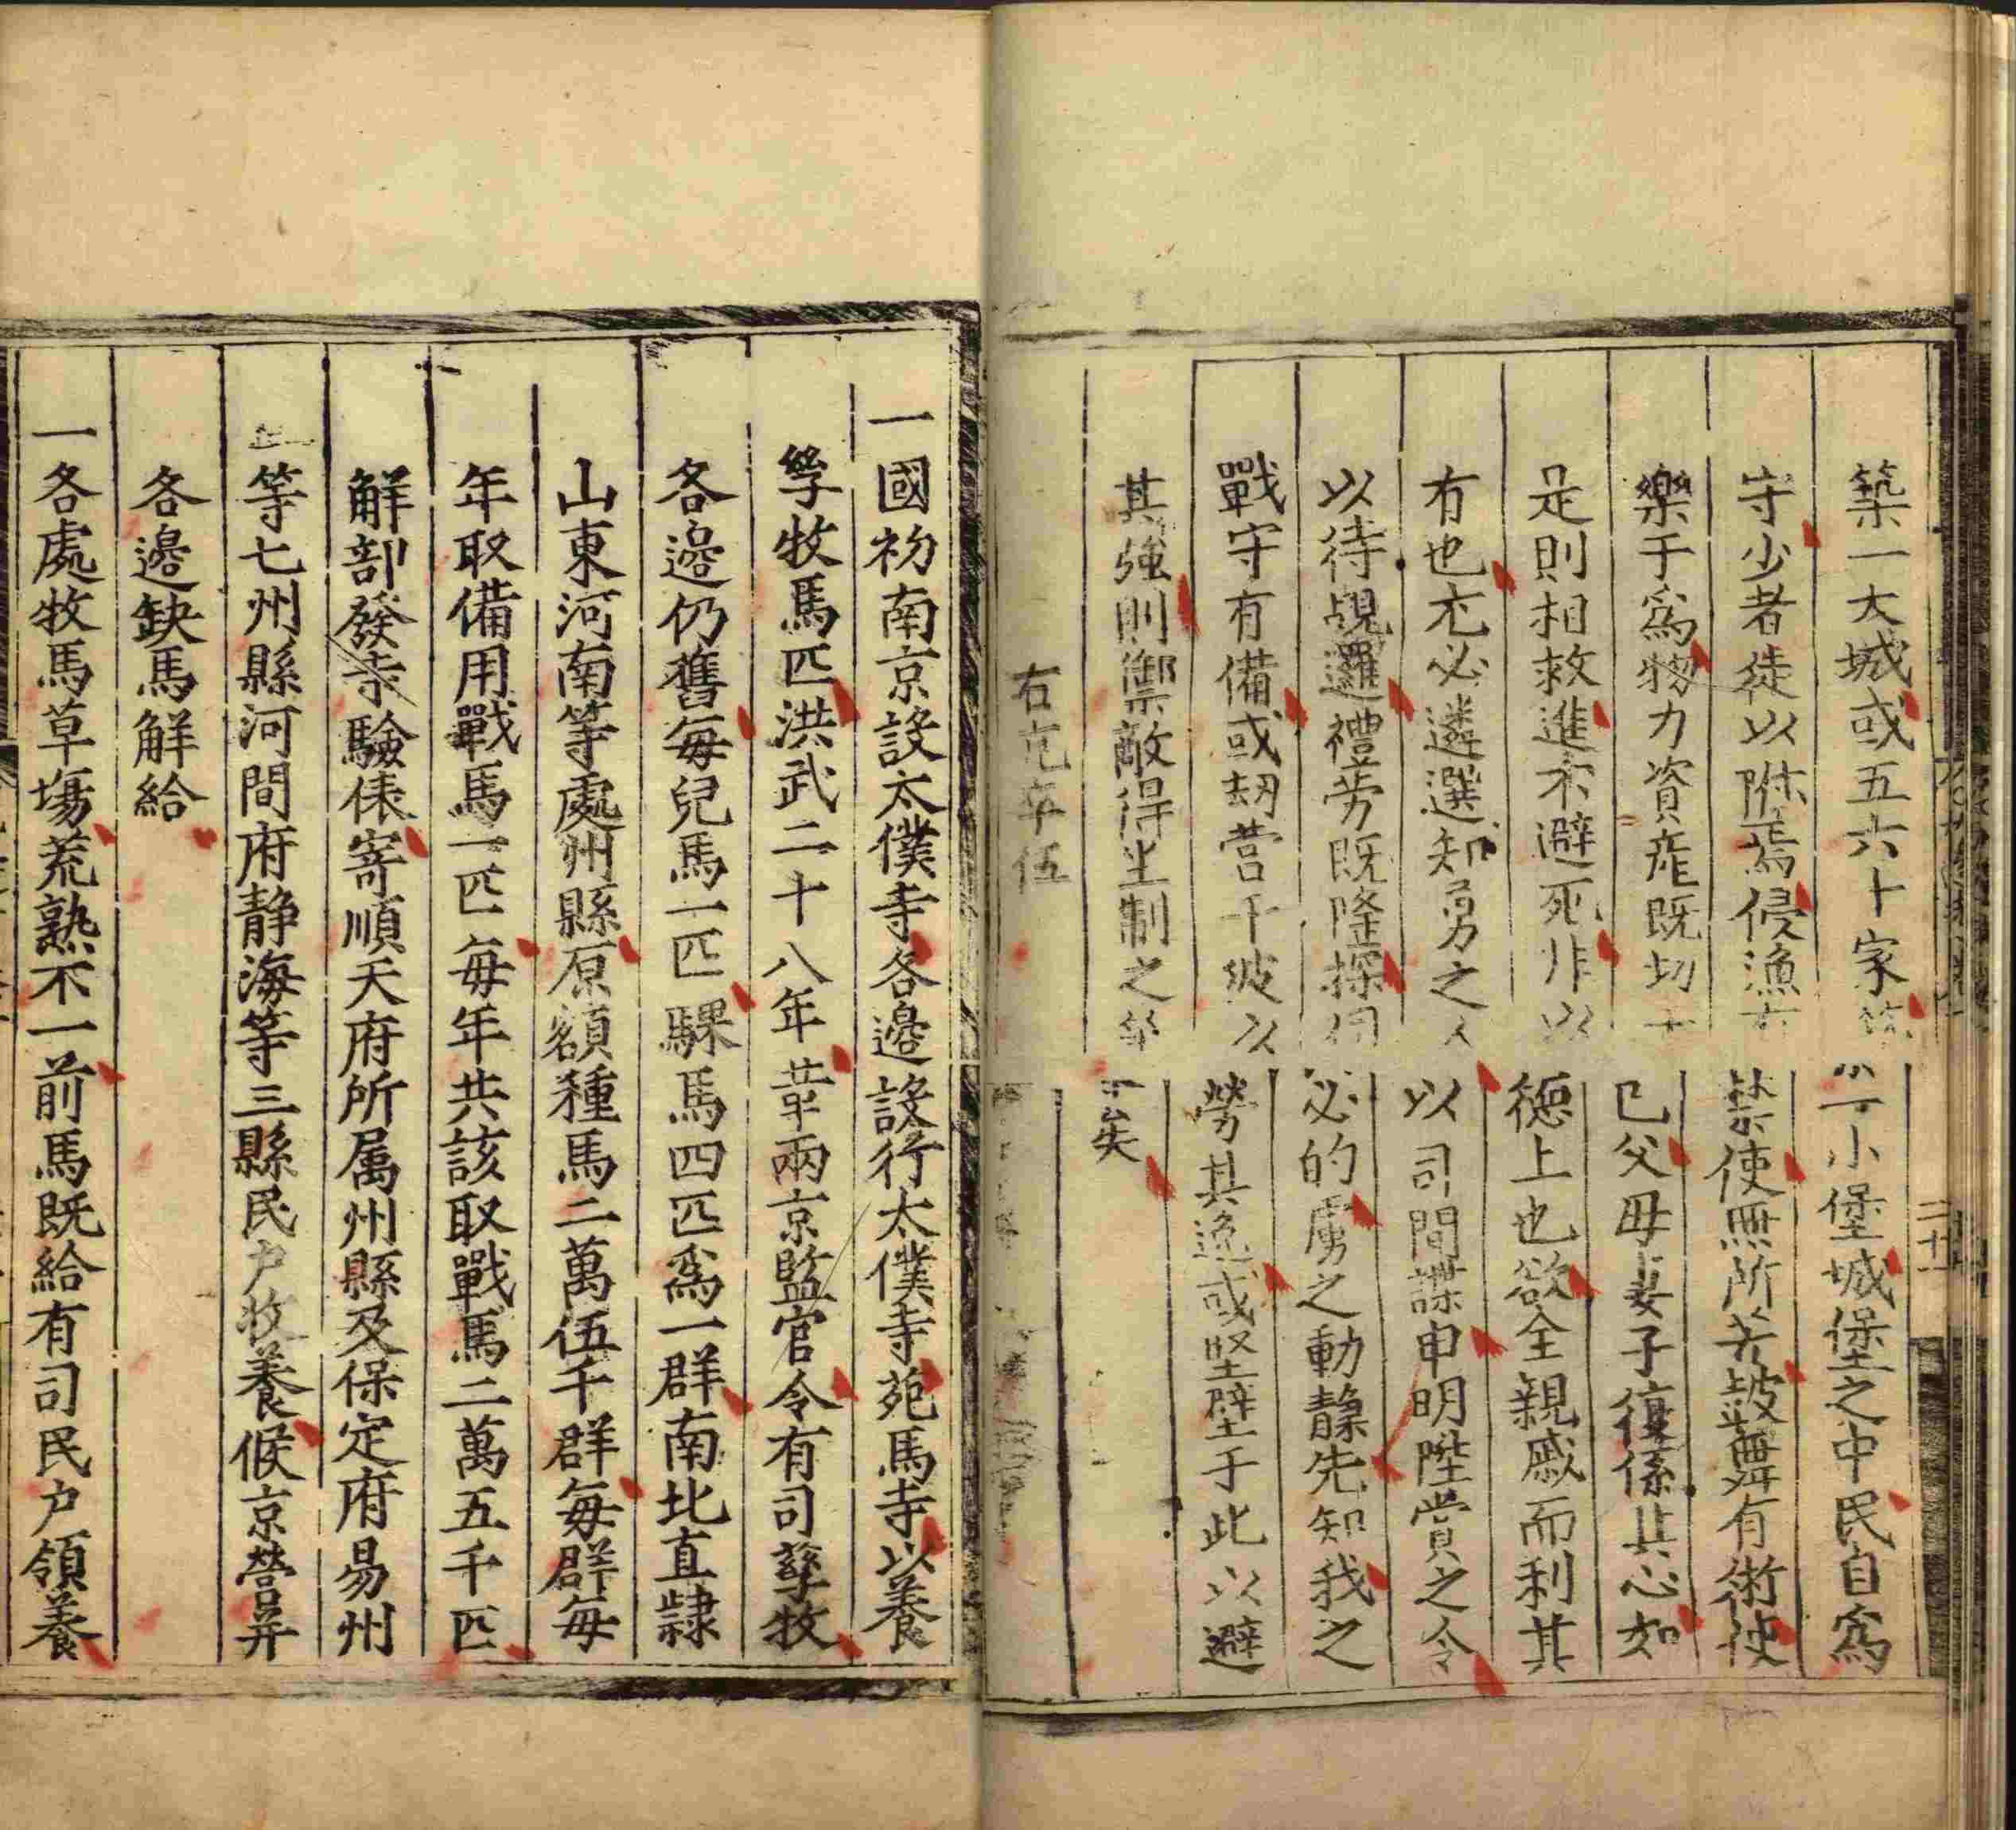 築一大城或五六十家築一小堡城堡之中民自爲
守少者徒以附焉侵漁有禁使無所苦鼓舞有術使
樂于爲物力資産既切于己父母妻子復係其心如
是則相救進不避死非以德上也欲全親戚而利其
有也尤必遴選知勇之人以司間諜申明陞賞之令
以待覘邏禮勞既隆探伺必的虜之動靜先知我之
戰守有備或刼營于彼以勞其逸或堅壁于此以避
其強則禦敵得生制之筭矣
右屯卒伍
一國初南京設太僕寺各邉設行太僕寺苑馬寺以養
孳牧馬匹洪武二十八年革兩京監官令有司孳牧
各邉仍舊每兒馬一匹騍馬四匹爲一群南北直隷
山東河南等處州縣原額種馬二萬伍千群每群每
年取備用戰馬一匹每年共該取戰馬二萬五千匹
解部發寺驗俵寄順天府所属州縣及保定府易州
等七州縣河間府静海等三縣民户牧養候京營并
各邉缺馬解給
一各處牧馬草塲荒熟不一前馬既給有司民户領養